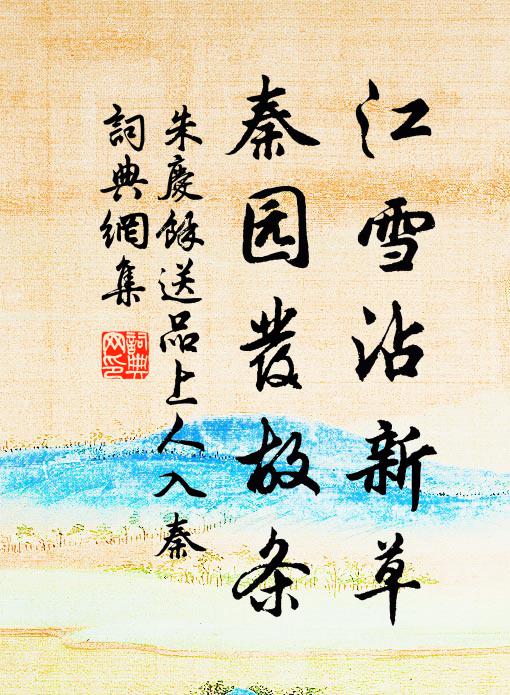 江雪沾新草
秦园發故条
朱慶餘送品上人入秦
詞典網集
詞典
网印